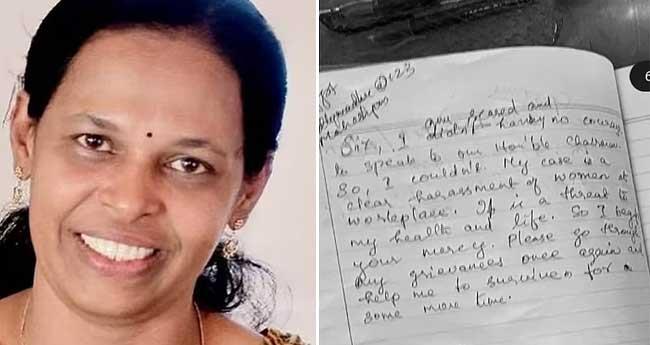 Sir, I am scared and
having no courage
to speak to our Hon'ble Chairman.
So, I couldn't. My case is a
clear harassment of women at
workplace. It is a threat to
my health and life. So I beg
your mercy. Please go through
my grievances once again and
help me to survive for a
some more time.
6